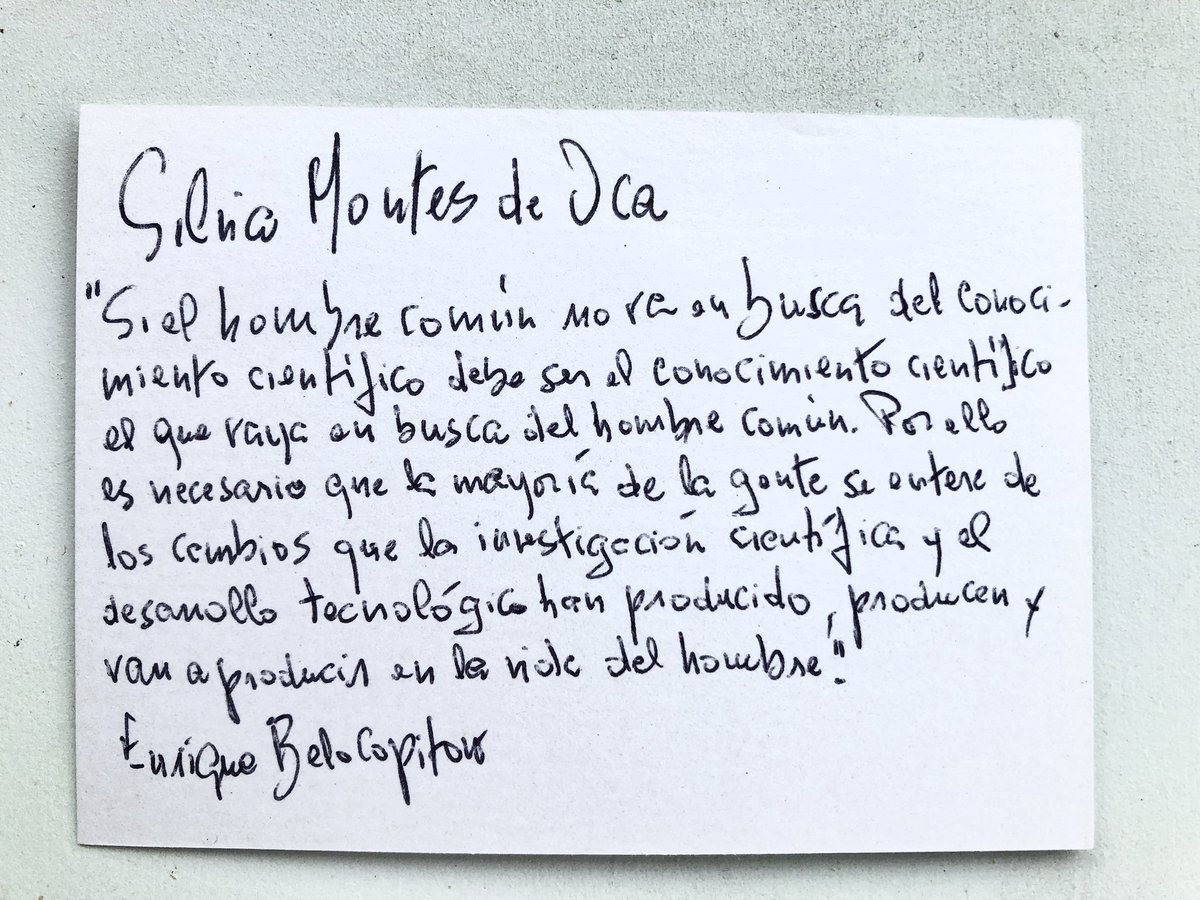 Silvia Montes de Oca
"Si el hombre común no va en busca del conoci-
miento científico debe ser el conocimiento científico
el que vaya en busca del hombre común. Por ello
es necesario que la mayoría de la gente se entere de
los cambios que la investigación científica y el
desarrollo tecnológico han producido, producen y
van a producir en la vida del hombre".
Enrique Belocopitow